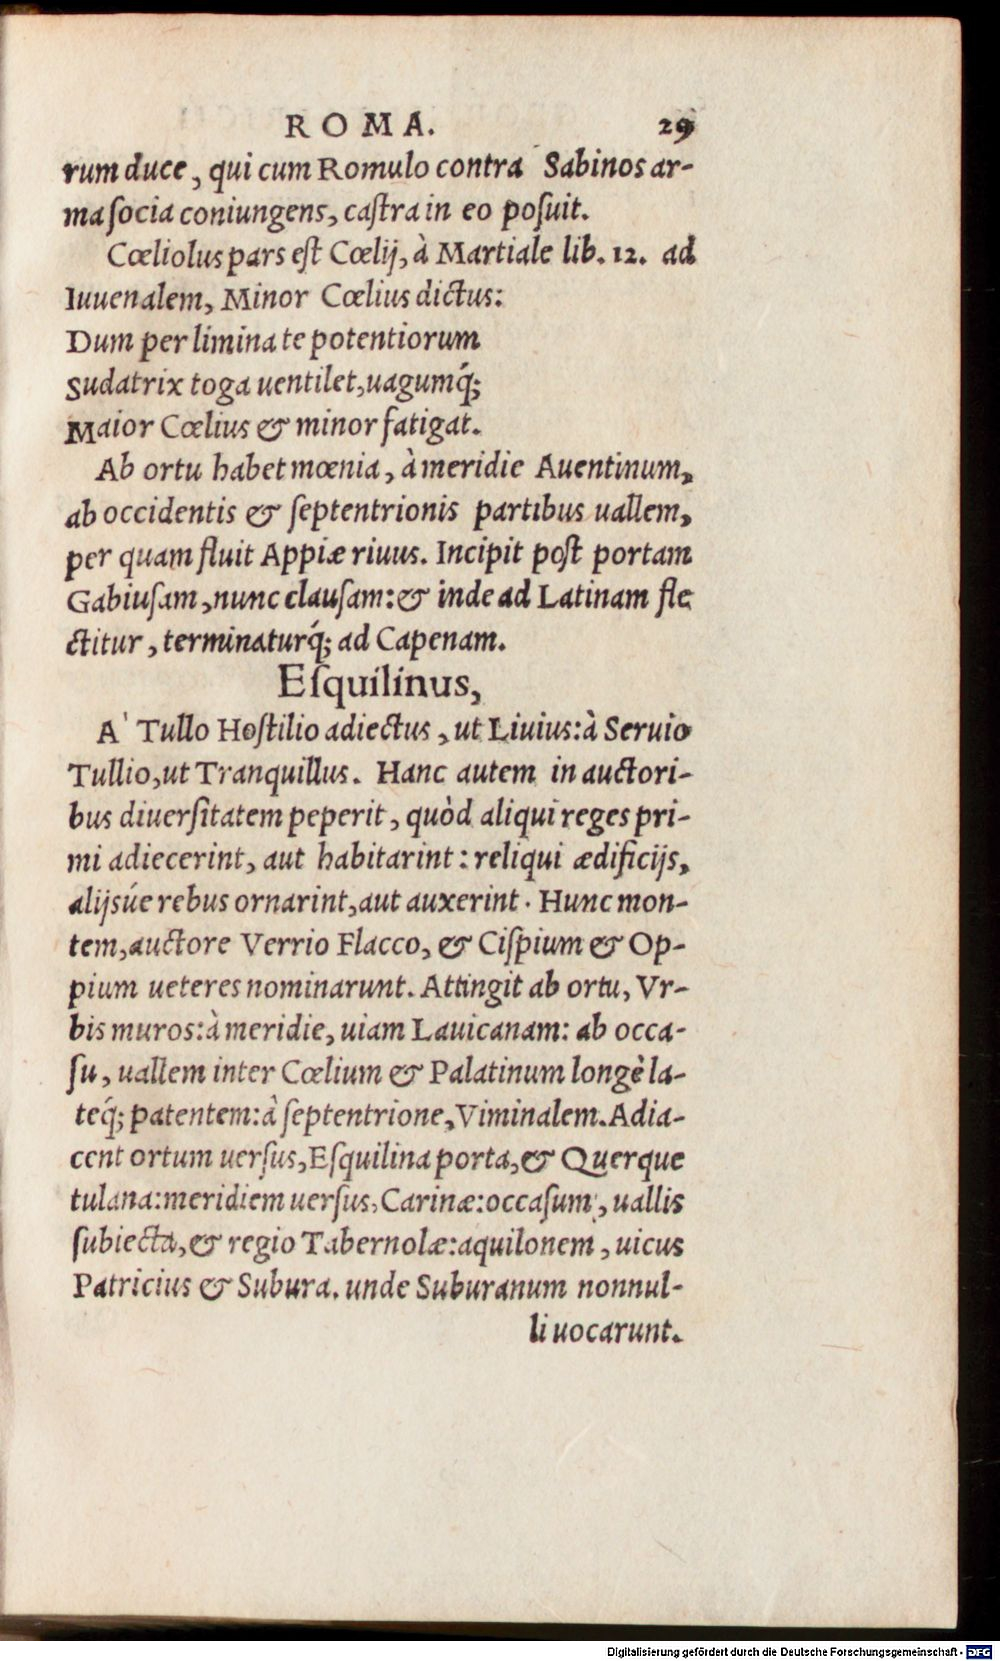 ROMA. 29
rum duce, qui cum Romulo contra Sabinos ar-
ma ſocia coniungens, caſtra in eo poſuit.
Cœliolus pars eſt Cœlij, à Martiale lib. 12. ad
Iuuenalem, Minor Cœlius dictus:
Dum per limina te potentiorum
Sudatrix toga uentilet, uagumq́;
Maior Cœlius & minor fatigat.
Ab ortu habet mœnia, à meridie Auentinum,
ab occidentis & ſeptentrionis partibus uallem,
per quam fluit Appiæ riuus. Incipit poſt portam
Gabiuſam, nunc clauſam: & inde ad Latinam fle
ctitur, terminaturq́; ad Capenam.
Eſquilinus,
A' Tullo Hoſtilio adiectus, ut Liuius: à Seruio
Tullio, ut Tranquillus. Hanc autem in auctori-
bus diuerſitatem peperit, quòd aliqui reges pri-
mi adiecerint, aut habitarint: reliqui ædificijs,
alijsúe rebus ornarint, aut auxerint. Hunc mon-
tem, auctore Verrio Flacco, & Ciſpium & Op-
pium ueteres nominarunt. Attingit ab ortu, Vr-
bis muros: à meridie, uiam Lauicanam: ab occa-
ſu, uallem inter Cœlium & Palatinum longè la-
teq́; patentem: à ſeptentrione, Viminalem. Adia-
cent ortum uerſus, Eſquilina porta, & Querque
tulana: meridiem uerſus, Carinæ: occaſum, uallis
ſubiecta, & regio Tabernolæ: aquilonem, uicus
Patricius & Subura. unde Suburanum nonnul-
li uocarunt.
Digitalisierung gefördert durch die Deutsche Forschungsgemeinschaft - DFG